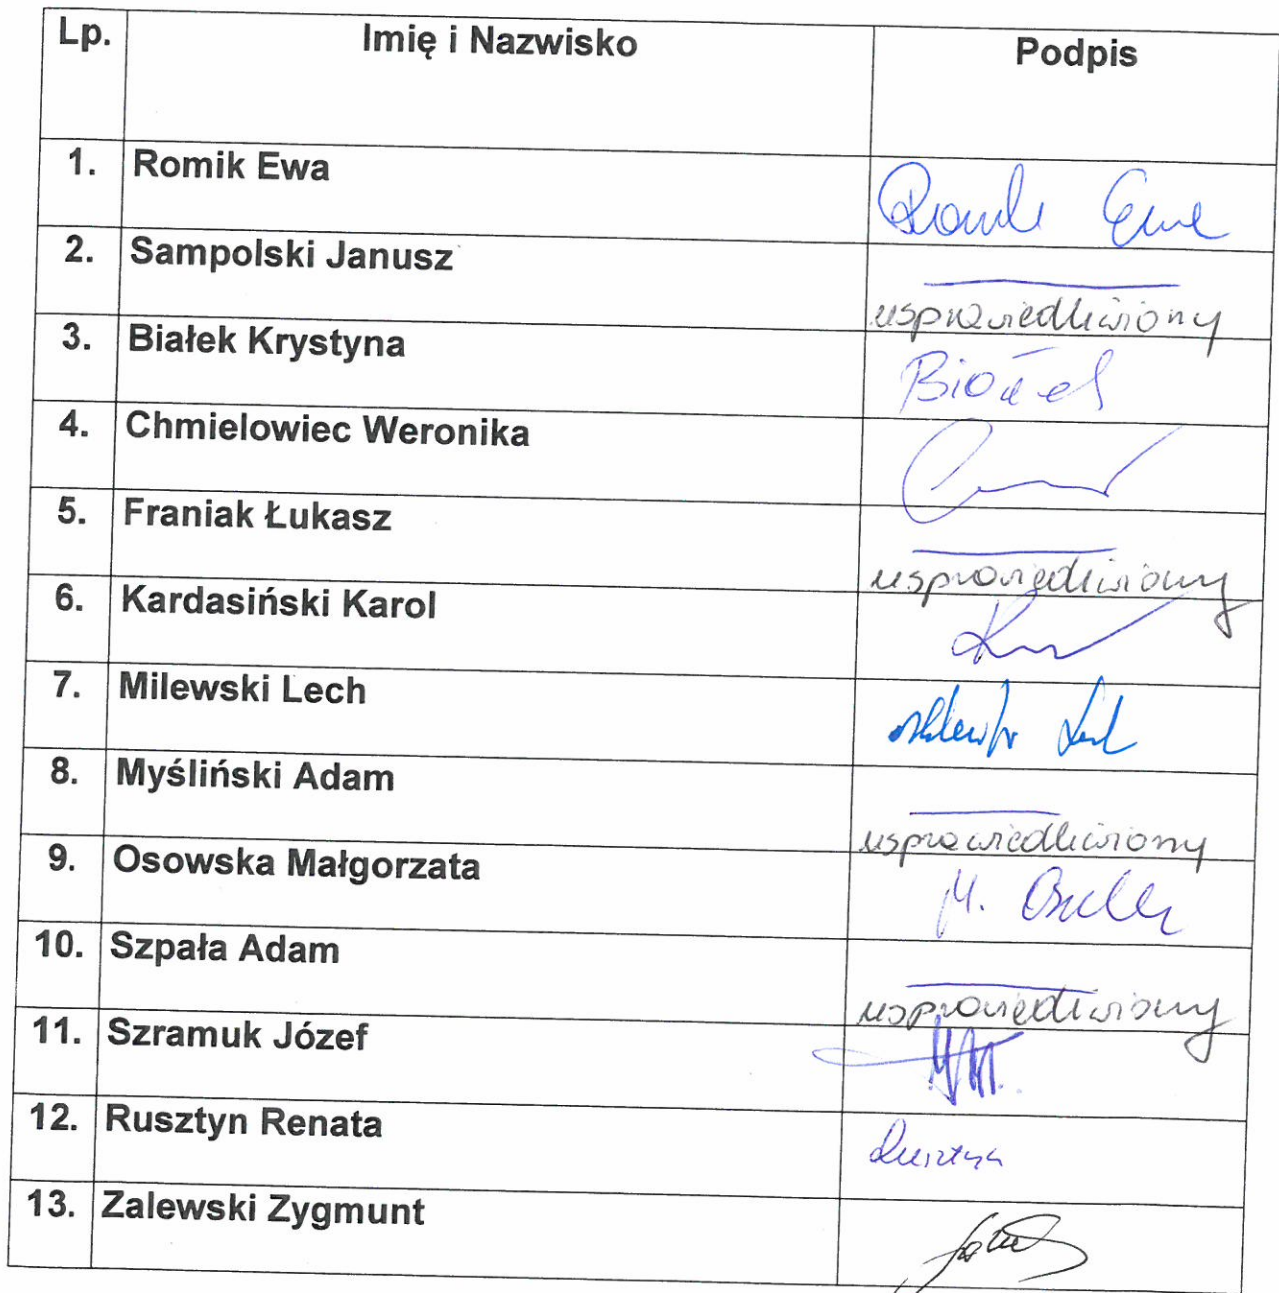 Lp. Imię i Nazwisko Podpis
1. Romik Ewa Romik Ewa
2. Sampolski Janusz usprawiedliwiony
3. Białek Krystyna Białek
4. Chmielowiec Weronika
5. Franiak Łukasz usprawiedliwiony
6. Kardasiński Karol
7. Milewski Lech Milewski Lech
8. Myśliński Adam usprawiedliwiony
9. Osowska Małgorzata M.
10. Szpała Adam usprawiedliwiony
11. Szramuk Józef
12. Rusztyn Renata Rusztyn
13. Zalewski Zygmunt